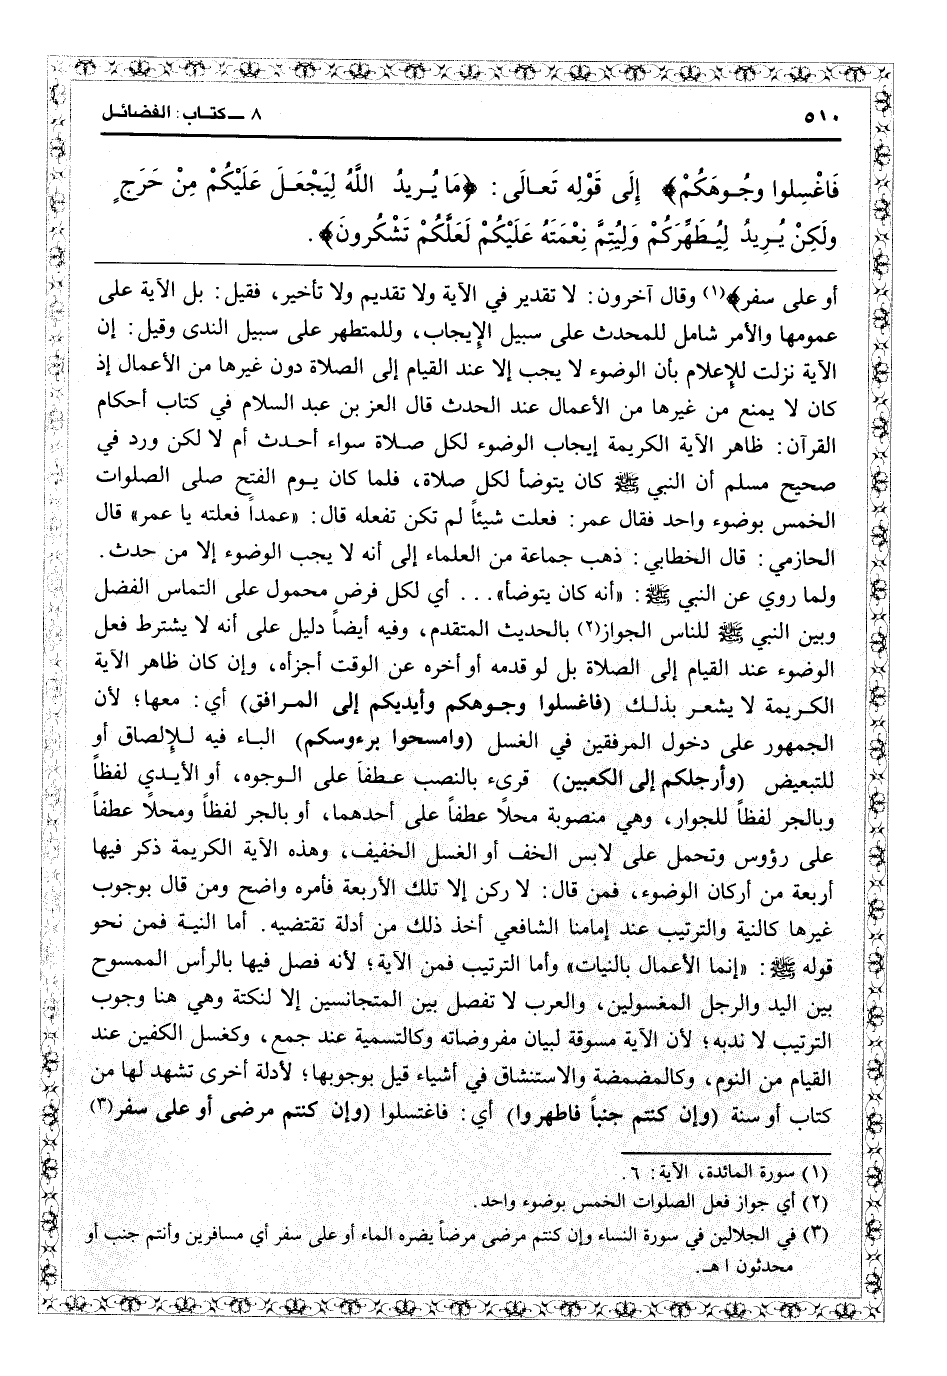 ٥١٠ ٨ ــ كتـاب: الفضائـل
فَاغْسِلوا وجُـوهَكُمْ﴾ إِلَى قَوْلِه تَعـالَى: ﴿مَا يُـريدُ اللَّهُ لِيَجْعَـلَ عَلَيْكُمْ مِنْ حَرَجٍ
ولَكِنْ يُـرِيدُ لِيُـطَهِّرَكُمْ وَلِيُتِمَّ نِعْمَتَهُ عَلَيْكُمْ لَعَلَّكُمْ تَشْكُرونَ﴾.
أو على سفر﴾(١) وقال آخرون: لا تقدير في الآية ولا تقديم ولا تأخير، فقيل: بل الآية على
عمومها والأمر شامل للمحدث على سبيل الإيجاب، وللمتطهر على سبيل الندى وقيل: إن
الآية نزلت للإعلام بأن الوضوء لا يجب إلا عند القيام إلى الصلاة دون غيرها من الأعمال إذ
كان لا يمنع من غيرها من الأعمال عند الحدث قال العز بن عبد السلام في كتاب أحكام
القرآن: ظاهر الآية الكريمة إيجاب الوضوء لكل صـلاة سواء أحـدث أم لا لكن ورد في
صحيح مسلم أن النبي ﷺ كان يتوضأ لكل صلاة، فلما كان يـوم الفتح صلى الصلوات
الخمس بوضوء واحد فقال عمر: فعلت شيئاً لم تكن تفعله قال: «عمداً فعلته يا عمر» قال
الحازمي: قال الخطابي: ذهب جماعة من العلماء إلى أنه لا يجب الوضوء إلا من حدث.
ولما روي عن النبي ﷺ: «أنه كان يتوضأ»... أي لكل فرض محمول على التماس الفضل
وبين النبي ﷺ للناس الجواز(٢) بالحديث المتقدم، وفيه أيضاً دليل على أنه لا يشترط فعل
الوضوء عند القيام إلى الصلاة بل لو قدمه أو أخره عن الوقت أجزأه، وإن كان ظاهر الآية
الكريمة لا يشعـر بذلـك (فاغسلوا وجـوهكم وأيديكم إلى المـرافق) أي: معها؛ لأن
الجمهور على دخول المرفقين في الغسل (وامسحوا برءوسكم) البـاء فيه لـلإلصاق أو
للتبعيض (وأرجلكم إلى الكعبين) قرىء بالنصب عـطفاً على الـوجوه، أو الأيـدي لفظاً
وبالجر لفظاً للجوار، وهي منصوبة محلاً عطفاً على أحدهما، أو بالجر لفظاً ومحلاً عطفاً
على رؤوس وتحمل على لابس الخف أو الغسل الخفيف، وهذه الآية الكريمة ذكر فيها
أربعة من أركان الوضوء، فمن قال: لا ركن إلا تلك الأربعة فأمره واضح ومن قال بوجوب
غيرها كالنية والترتيب عند إمامنا الشافعي أخذ ذلك من أدلة تقتضيه. أما النيـة فمن نحو
قوله ﷺ: «إنما الأعمال بالنيات» وأما الترتيب فمن الآية؛ لأنه فصل فيها بالرأس الممسوح
بين اليد والرجل المغسولين، والعرب لا تفصل بين المتجانسين إلا لنكتة وهي هنا وجوب
الترتيب لا ندبه؛ لأن الآية مسوقة لبيان مفروضاته وكالتسمية عند جمع، وكغسل الكفين عند
القيام من النوم، وكالمضمضة والاستنشاق في أشياء قيل بوجوبها؛ لأدلة أخرى تشهد لها من
كتاب أو سنة (وإن كنتم جنباً فاطهروا) أي: فاغتسلوا (وإن كنتم مرضى أو على سفر(٣)
(١) سورة المائدة، الآية: ٦.
(٢) أي جواز فعل الصلوات الخمس بوضوء واحد.
(٣) في الجلالين في سورة النساء وإن كنتم مرضى مرضاً يضره الماء أو على سفر أي مسافرين وأنتم جنب أو
محدثون ا هـ.